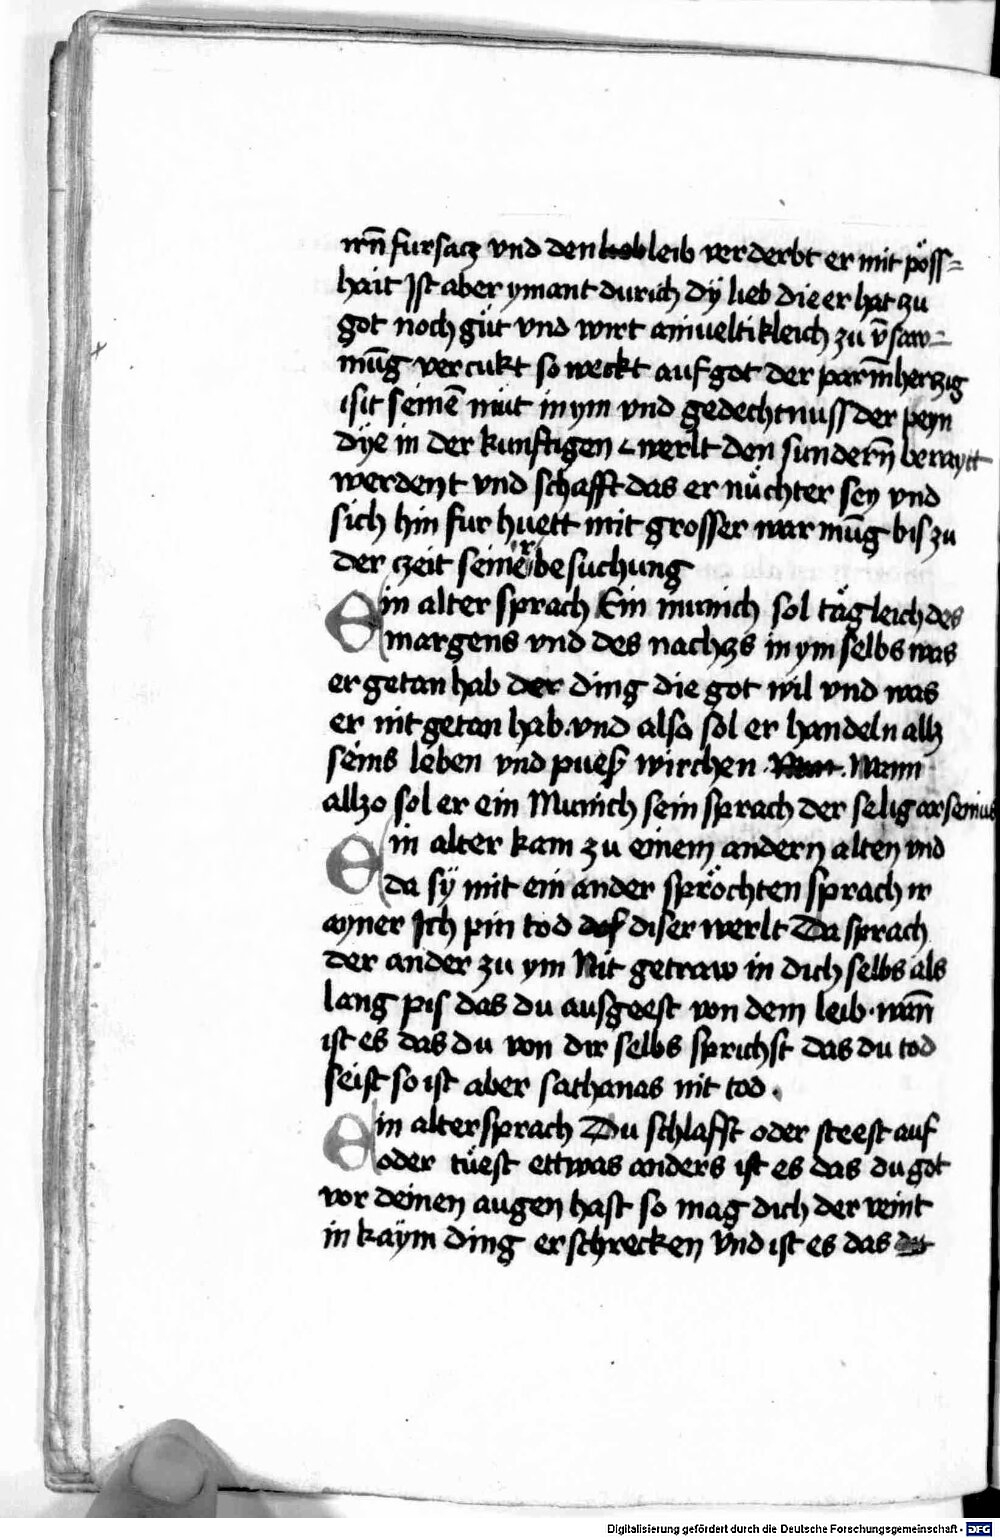 irn̄ fursacz vnd den leib verderbt er mit pöss=
hait Ist aber ymant durich dÿ lieb die er hat zu
got noch güt vnd wirt ainueltikleich zu v̄saw=
mūg verzukt so weckt auf got der parm̄herczig
isit seinē müt in ym vnd gedechtnuss der peyn
dÿe in der kunftigen werlt den sundern̄ beraytt
werdent vnd schafft das er nüchter sey vnd
sich hin fur huett mit grosser war mūg bis zu
der czeit seiner besuchung
Ein alter sprach Ein munich sol tägleich des
margens vnd des nachczs in ym selbs was
er getan hab der ding die got wil vnd was
er nit getan hab. vnd also sol er handeln allz
seins leben vnd puesʒ wirchen Wann
allzo sol er ein Munich sein sprach der selig arsenius
Ein alter kam zu einem andern alten vnd
da sÿ mit ein ander spröchten sprach ir
ayner Ich pin tod diser werlt Da sprach
der ander zu ym Nit getraw in dich selbs als
lang pis das du ausgeest von dem leib. wan̄
ist es das du von dir selbs sprichst das du tod
seist so ist aber sathanas nit tod.
Ein alter sprach Du schlaffst oder steest auf
oder tüest ettwas anders ist es das du got
vor deinen augen hast so mag dich der veint
in kaÿm ding erschrecken Vnd ist es das
Digitalisierung gefördert durch die Deutsche Forschungsgemeinschaft - DFG